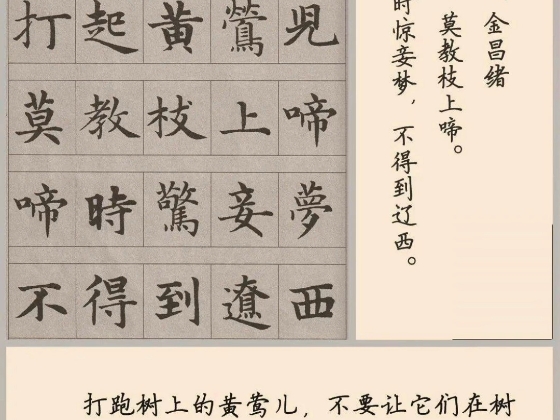 打起黄鶯児
莫教枝上啼
啼時驚妾夢
不得到遼西
金昌绪
莫教枝上啼。
时惊妾梦，不得到辽西。
打跑树上的黄莺儿，不要让它们在树